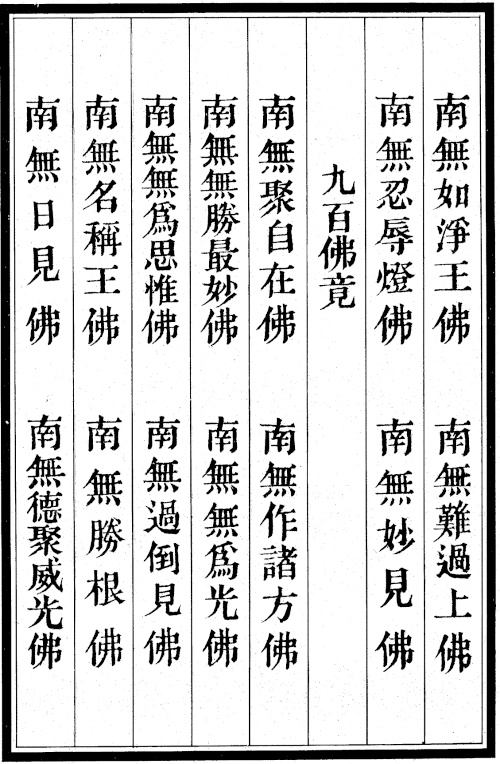 南無如淨王佛　南無難過上佛
南無忍辱燈佛　南無妙見佛
九百佛竟
南無聚自在佛　南無作諸方佛
南無無勝最妙佛　南無無爲光佛
南無無爲思惟佛　南無過倒見佛
南無名稱王佛　南無勝根佛
南無日見佛　南無德聚威光佛